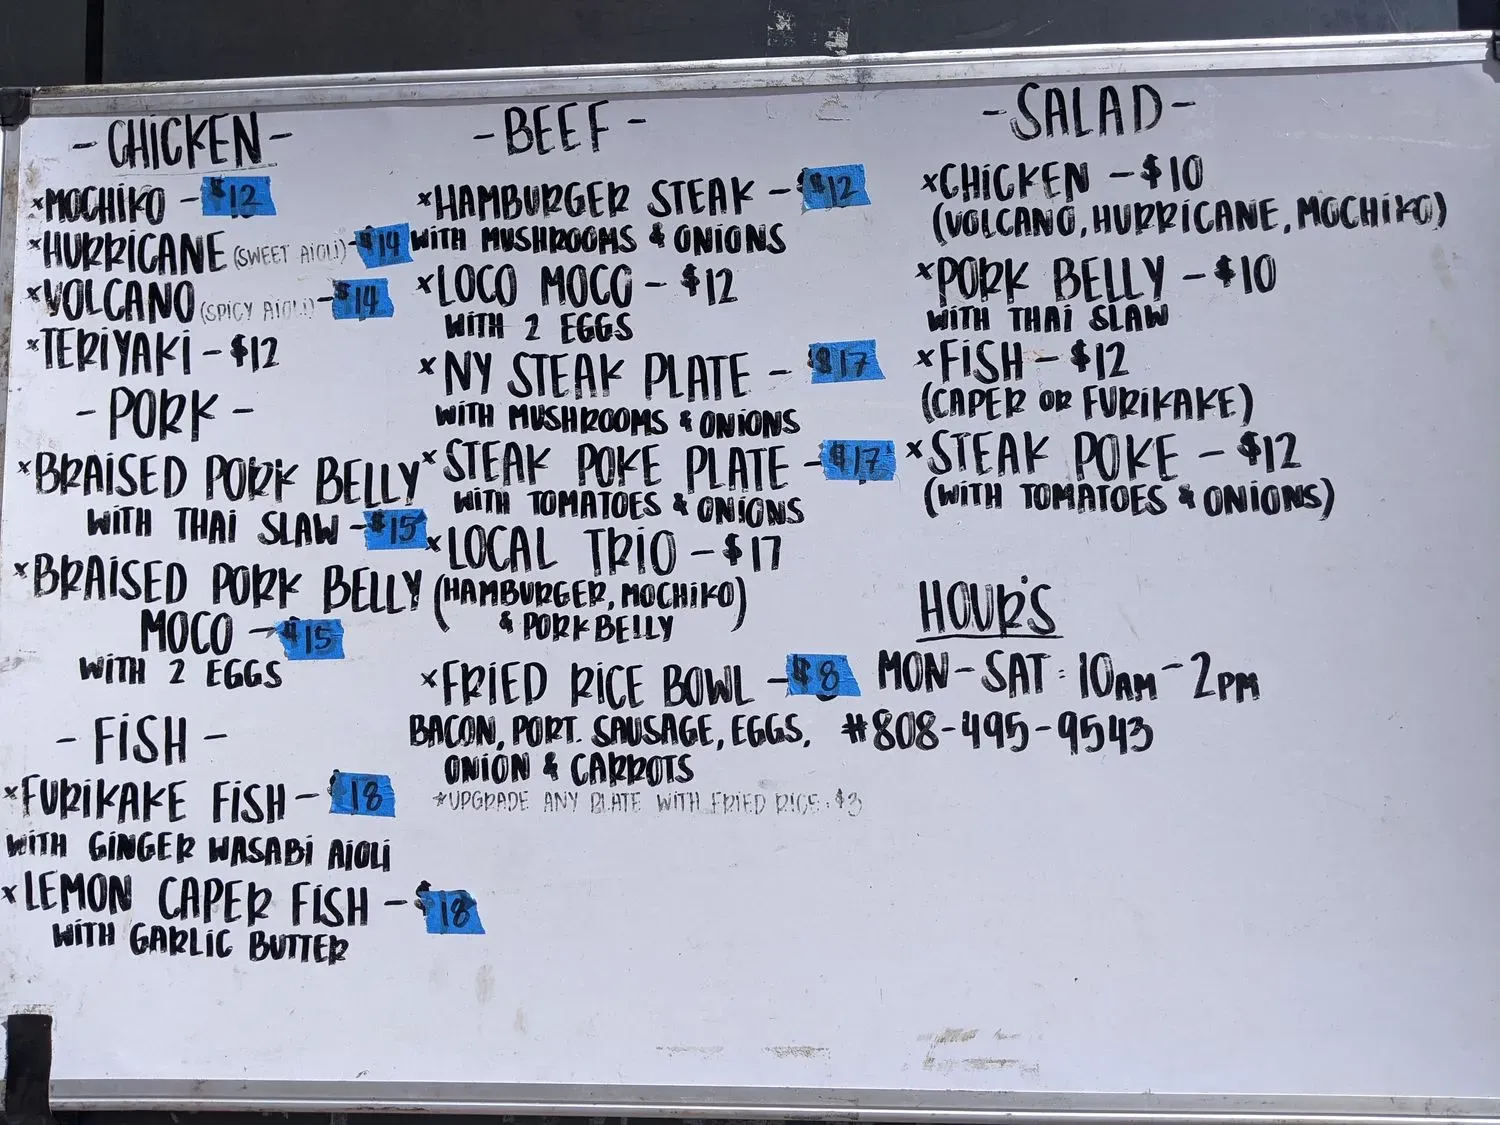 - CHICKEN -
*MOCHIKO - $12
*HURRICANE (SWEET AIOLI) - $14
*VOLCANO (SPICY AIOLI) - $14
*TERIYAKI - $12
- PORK -
*BRAISED PORK BELLY
WITH THAI SLAW - $15
*BRAISED PORK BELLY
MOCO - $15
WITH 2 EGGS
- FISH -
*FURIKAKE FISH - $18
WITH GINGER WASABI AIOLI
*LEMON CAPER FISH - $18
WITH GARLIC BUTTER
- BEEF -
*HAMBURGER STEAK - $12
WITH MUSHROOMS & ONIONS
*LOCO MOCO - $12
WITH 2 EGGS
*NY STEAK PLATE - $17
WITH MUSHROOMS & ONIONS
*STEAK POKE PLATE - $17
WITH TOMATOES & ONIONS
*LOCAL TRIO - $17
(HAMBURGER, MOCHIKO)
& PORK BELLY
*FRIED RICE BOWL - $8
BACON, PORT. SAUSAGE, EGGS,
ONION & CARROTS
*UPGRADE ANY PLATE WITH FRIED RICE: $3
- SALAD -
*CHICKEN - $10
(VOLCANO, HURRICANE, MOCHIKO)
*PORK BELLY - $10
WITH THAI SLAW
*FISH - $12
(CAPER OR FURIKAKE)
*STEAK POKE - $12
(WITH TOMATOES & ONIONS)
HOUR'S
MON - SAT : 10AM - 2PM
#808-495-9543